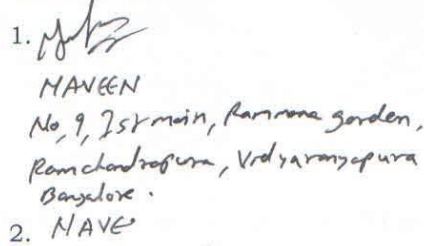 1.
NAVEEN
No, 9, Ist main, Rammona garden,
Ramchandrapura, Vidyaranyapura
Bangalore.
2. NAVE